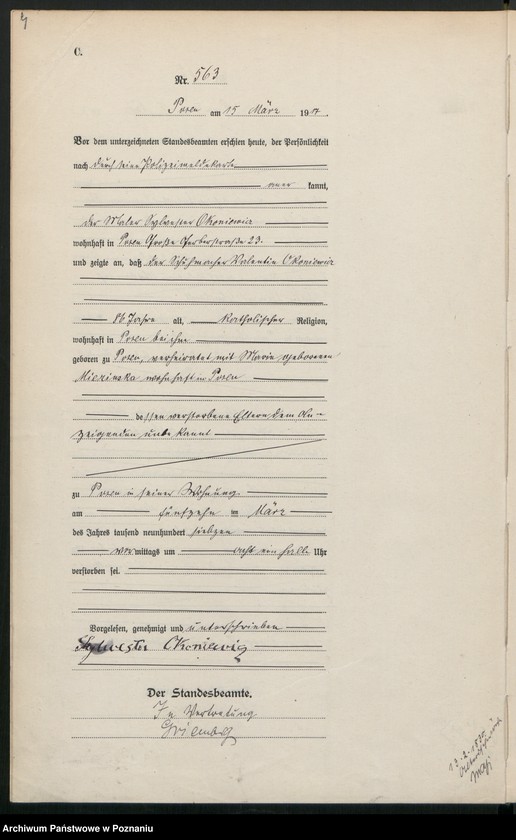 C.
Nr. 563
Posen am 15 März 1917.
Vor dem unterzeichneten Standesbeamten erschien heute, der Persönlichkeit
nach durch seine Polizeimeldekarte
aner kannt,
der Maler Sylvester Okoniewicz
wohnhaft in Posen Große Gerberstraße 23.
und zeigte an, daß der Schuhmacher Valentin Okoniewicz
86 Jahre alt, katholischer Religion,
wohnhaft in Posen bei ihm
geboren zu Posen, verheiratet mit Maria geborenen
wohnhaft in Posen
dessen verstorbene Eltern dem An-
zeigenden unbekannt
zu Posen in seiner Wohnung
am fünfzehn ten März
des Jahres tausend neunhundert siebzehn
vormittags um acht ein halb Uhr
verstorben sei.
Vorgelesen, genehmigt und unterschrieben
Sylvester
Der Standesbeamte.
In Vertretung
Archiwum Państwowe w Poznaniu